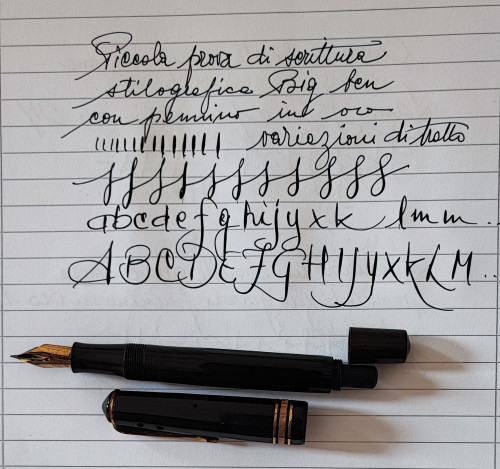 Piccola prova di scrittura
stilografica Big ben
con pennino in oro
variazioni di tratto
abcdefghijyxk lmm...
ABCDEFGHIJYXKLM...